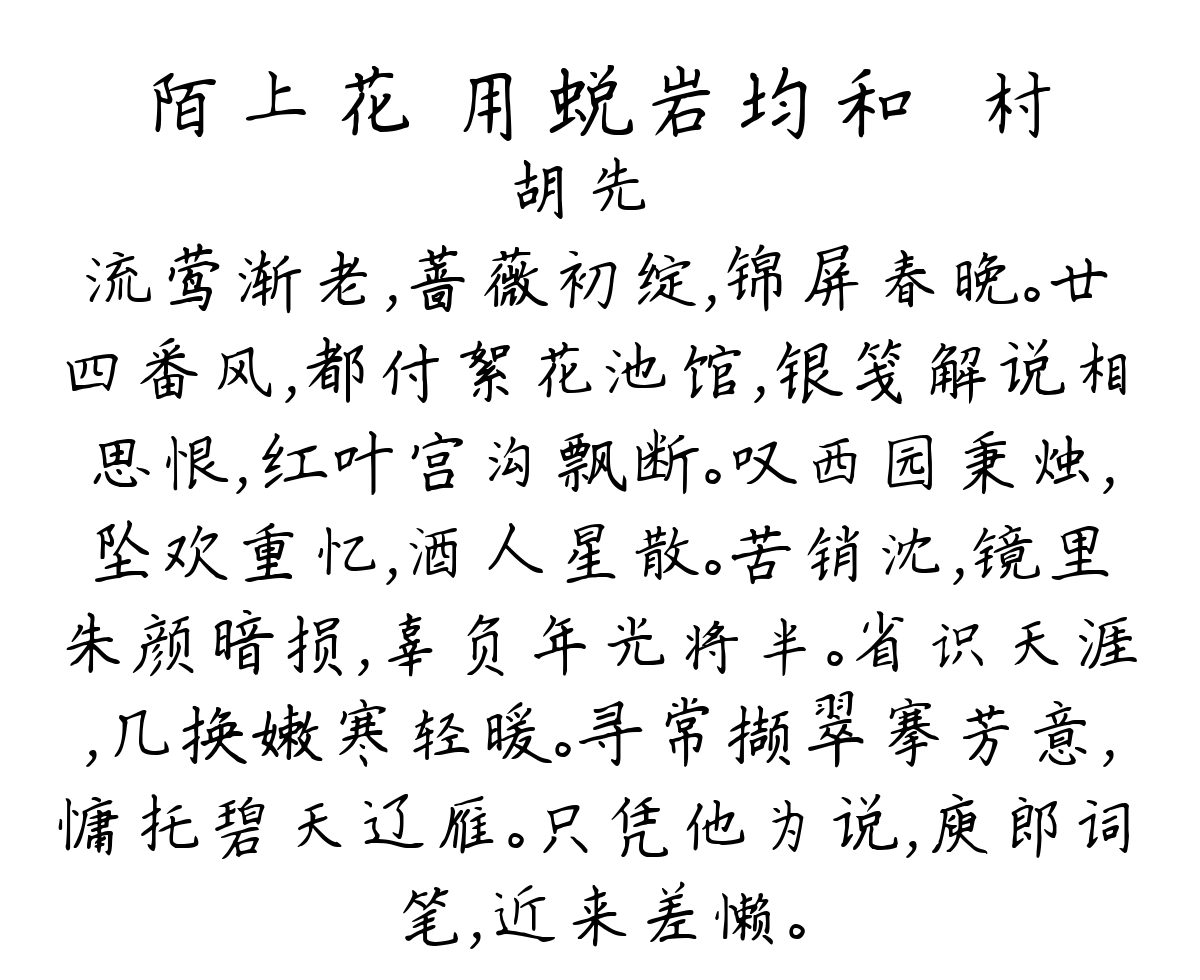 陌上花 用蜕岩均和 村
胡先
流莺渐老,蔷薇初绽,锦屏春晚。廿
四番风,都付絮花池馆,银笺解说相
思恨,红叶宫沟飘断。叹西园秉烛,
坠欢重忆,酒人星散。苦销沈,镜里
朱颜暗损,辜负年光将半。省识天涯
,几换嫩寒轻暖。寻常撷翠搴芳意,
慵托碧天辽雁。只凭他为说,庾郎词
笔,近来差懒。